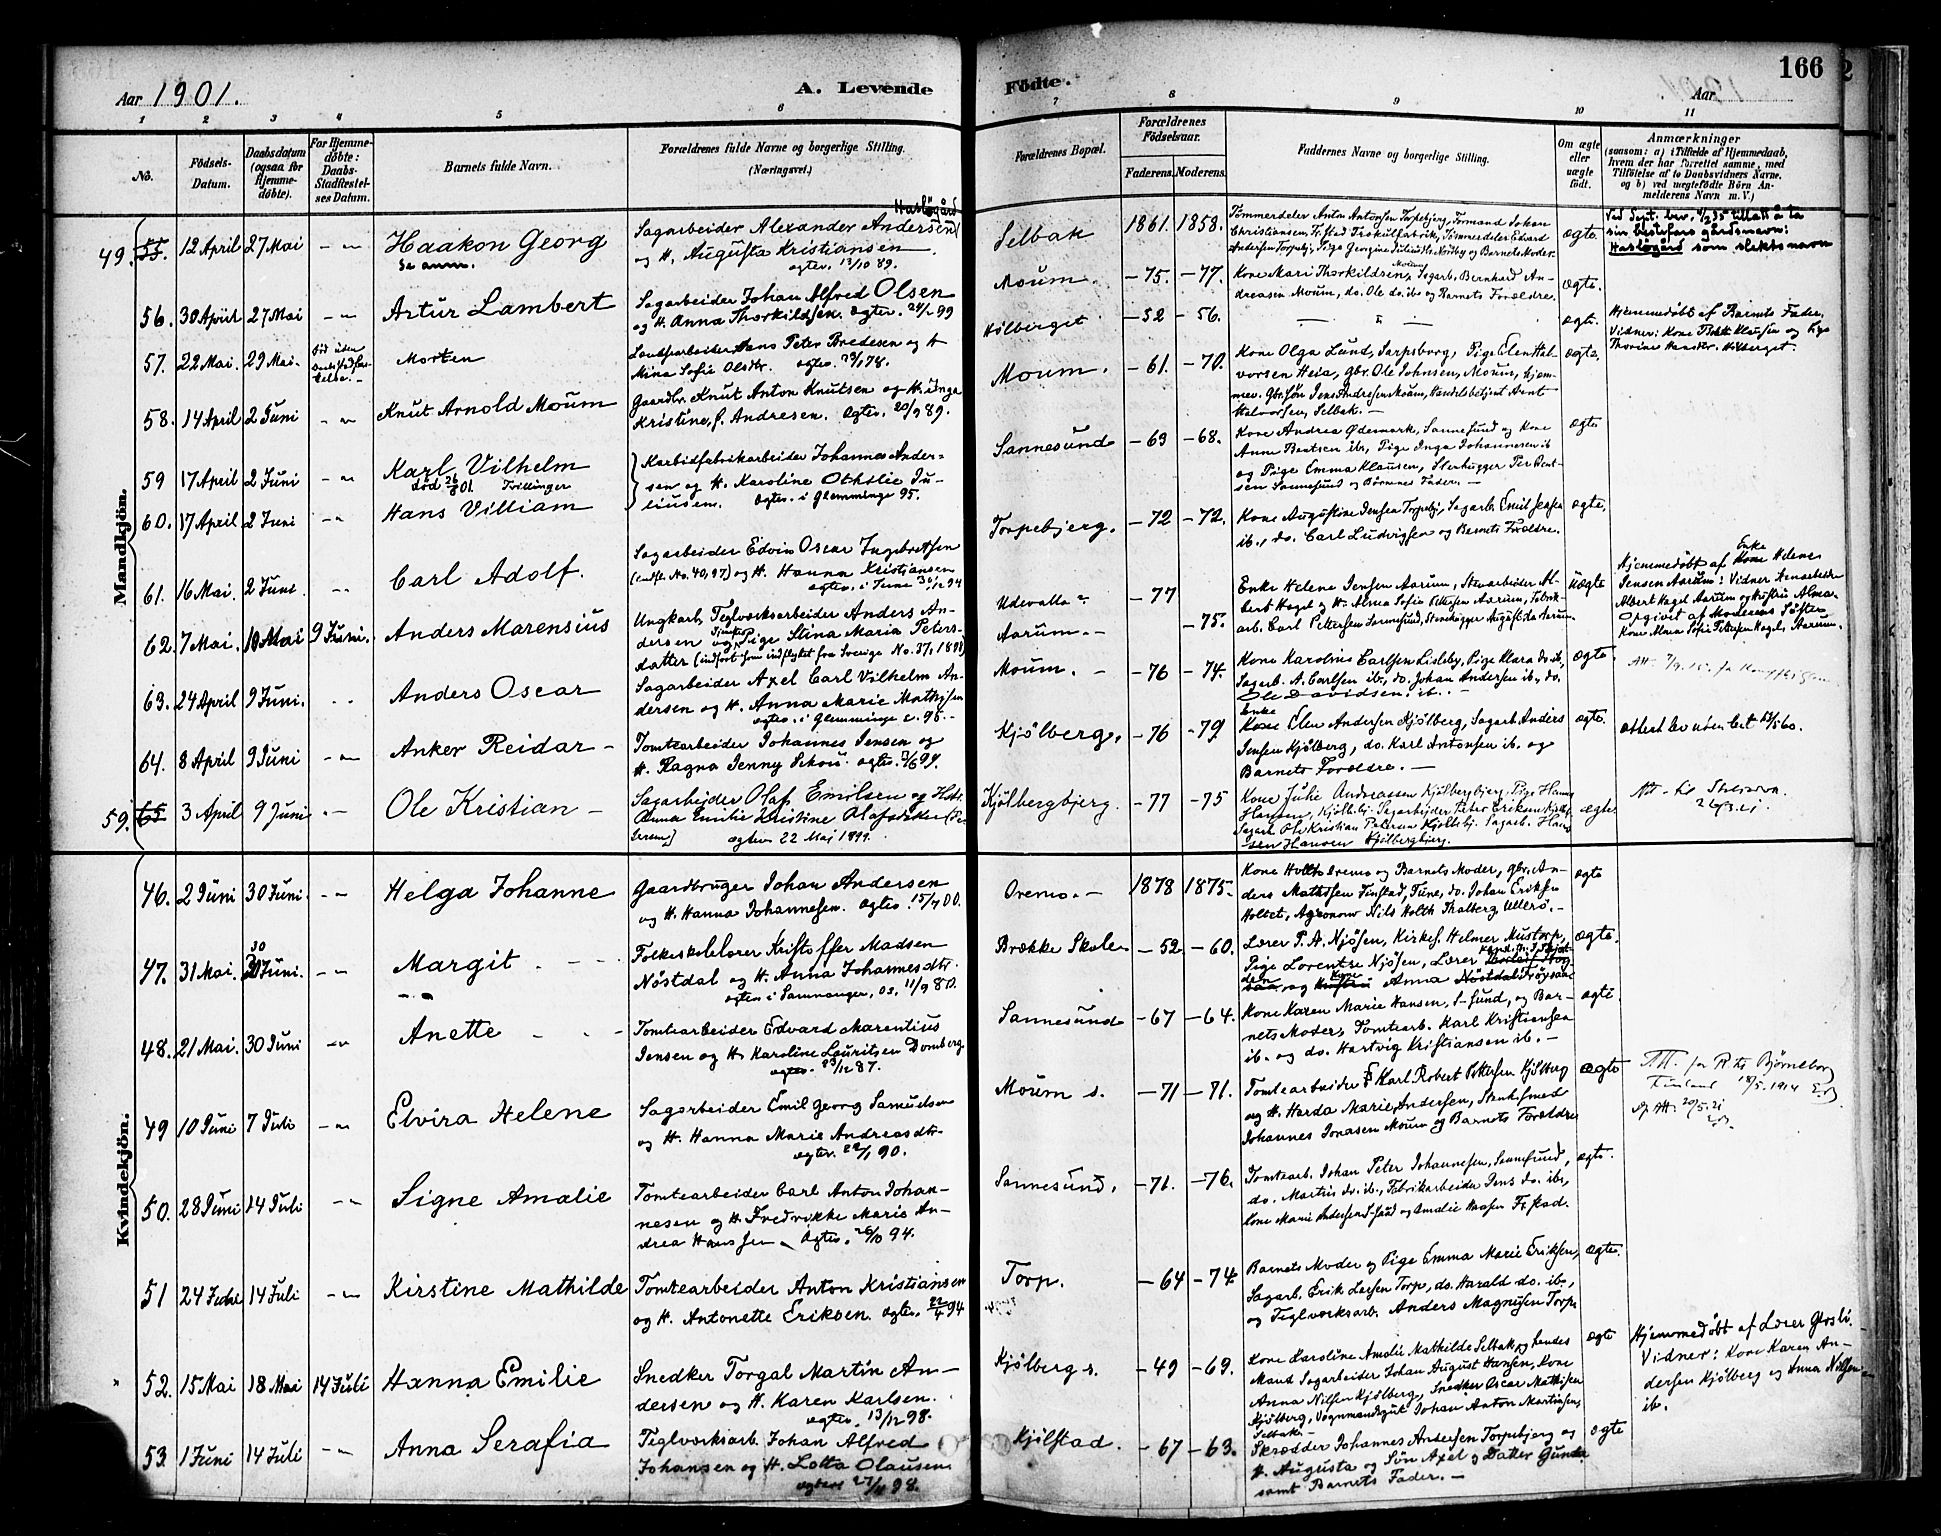 Aar 1901.
A. Levende
Födte.
Aar
166
1 2 3 4 5 6 7 8 9 10 11
No.
Födsels-
Datum.
Daabsdatum
(ogsaa for
Hjemme-
döbte).
For Hjemme-
döbte:
Daabs-
Stadfæstel-
ses Datum.
Barnets fulde Navn.
Forældrenes fulde Navne og borgerlige Stilling.
(Næringsvei.)
Forældrenes Bopæl.
Forældrenes
Födselsaar.
Faderens. Moderens.
Faddernes Navne og borgerlige Stilling.
Om ægte
eller
uægte
födt.
Anmærkninger
(saasom: a) i Tilfælde af Hjemmedaab,
hvem der har forrettet samme, med
Tilföielse af to Daabsvidners Navne,
og b) ved uægtefödte Börn An-
melderens Navn m. V.)
Mandkjön.
49. 55. 12 April 27 Mai
Haakon Georg
Se anm.
Haslegård
Sagarbeider Alexander Andersen
og H. Augusta Kristiansen
ægtev. 13/10 89.
Selbak 1861. 1858.
Tømmerdeler Anton Antonsen Torpebjerg, Formand Johan
og Barnets Moder.
ægte.
Ved Dept. bev. 4/2 35 tillatt å ta
sin bestefars gårdsnavn:
Haslegård som slektsnavn
56. 30 April 27 Mai
Artur Lambert
Sagarbeider Johan Alfred Olsen
og H. Anna Thorkildsen. ægtev. 24/2 99
Moum. -75. -77.
Kone Mari Thorkildsen, Moum, Sagarb. Bernhard An-
dreasen Moum, do. Ole do. ib. og Barnets Forældre.
ægte.
57. 22 Mai. 29 Mai.
Morten
Peter Bredesen og H
Mina Sofie Olsdtr. ægtev. 29/1 78.
Hilberget -52 -56.
ægte.
Hjemmedøbt af Barnets Fader.
Vidner: Kone
58. 14 April 2 Juni
Knut Arnold Moum
Gaardbr. Knut Anton Knutsen og H. Inga
Kristine, f. Andresen. ægtev. 20/9 89.
Moum. -61. -70.
Kone Olga Lund, Sarpsborg, Pige Elen Hal-
vorsen Heia, gbr. Ole Johnsen, Moum, hjem-
mev. gbr. søn Jens Andresen Moum, Handelsbetjent Arnt
Halvorsen, Selbak.
ægte.
59 17 April 2 Juni
Karl Vilhelm
død 26/8 01. Tvillinger
Karbidfabrikarbeider Johannes Ander-
sen og H. Karoline Othilie Ju-
liussen. ægtev. i Glemminge 95.
Sannesund -69 -68.
Kone Andrea Ødemark, Sannesund og Kone
Anne Bentsen ib., Pige Inga Johannesen ib
og Pige Emma Klausen, Stenhugger Per Bent-
sen Sannesund og Børnenes Fader.
ægte
60. 17 April 2 Juni
Hans Villiam
61. 16 Mai. 2 Juni
Carl Adolf.
Sagarbeider Edvin Oscar Ingebretsen
(indfl. No. 40, 97) og H. Hanna Kristiansen
ægtev. i Tune 30/12 94
Torpebjerg. -72 -72.
Kone Augustine Jensen Torpebj., Sagarb. Emil Jensen
ib., do. Carl Ludvigsen og Barnets Forældre.
ægte.
62. 7 Mai. 10 Mai 9 Juni.
Anders Marensius
Ungkarl, Teglverksarbeider Anders An-
dersen og Tjenestepige Stina Maria Peters-
datter (indført som indflyttet fra Sverige No. 37, 1898)
Udevalla -77
Aarum. -75.
Enke Helene Jensen Aarum, Stenarbeider Al-
bert Hagel og H. Alma Sofie Pettersen Aarum, Fabrik-
arb. Carl Pettersen Sannesund, Stenhugger
uægte
Hjemmedøbt af Enke Kone Helene
Jensen Aarum: Vidner Stenarbeider
Albert Hagel Aarum og Hustru Alma.
Opgivet af Moderens Søster
Kone Alma Sofie Pettersen Hagel, Aarum.
63. 24 April 9 Juni.
Anders Oscar
Sagarbeider Axel Carl Vilhelm An-
dersen og H. Anna Marie Mathisen
ægtev. i Glemminge c. 95.
Moum. -76 -74.
Kone Karoline Carlsen Lisleby, Pige Klara do ib,
Sagarb. A. Carlsen ib., do. Johan Andersen ib., do.
Ole Davidsen. ib.
ægte.
64. 8 April 9 Juni
Anker Reidar
Tomtearbeider Johannes Jensen og
H. Ragna Jenny
Kjølberg. -76 -79
Enke Kone Elen Andersen Kjølberg, Sagarb. Anders
Jensen Kjølberg, do. Karl Antonsen ib. og
Barnets Forældre.
ægte.
59. 65 3 April 9 Juni
Ole Kristian
Sagarbejder Olaf Emilsen og Hstr.
Anna Emilie Kristine
ægtev. 22 Maj 1899.
Kjølbergbjerg. -77 -75
Kone Julie Andreassen Kjølbergbjerg, Pige Hanna
Hansen, Kjølbebj. Sagarbejder Peter Eriksen
Sagarb Ole Kristian Petersen Kjølbebj. Sagarb. Hans
Hansen Kjølbergbjerg.
ægte
Kvindekjön.
46. 2 Juni 30 Juni.
Helga Johanne
Gaardbruger Johan Andersen
og H. Hanna Johannesen. ægtev. 15/4 00.
Oremo. 1878 1875.
Kone Holt Oremo og Barnets Moder, gbr. An-
ders Mathisen Tinstad, Tune, do. Johan Eriksen
Holtet, Agronom Nils Holth Thalberg, Ullerø.
ægte
47. 31 Mai. 30 Juni.
Margit
Folkeskolelærer Kristoffer Madsen
Nøstdal og H. Anna Johannesdtr.
ægtev. i Samnanger, Os, 11/9 80.
Brække Skole -52 -60.
Lærer P. A. Njøsen, Kirkes. Helmer Mustorp,
Pige Lorentze Njøsen, Lærer
og Kone Anna Nøstdal Frøysaa
ægte.
48. 21 Mai. 30 Juni
Anette
Tomtearbeider Edvard Marentius
Jensen og H. Karoline Lauritsen Domberg
ægtev. 23/12 87.
Sannesund -67 -64.
Kone Karen Marie Hansen, S-sund, og Bar-
nets Moder, Tomtearb. Karl Kristiansen
ib. og do. Hartvig Kristiansen ib.
ægte.
49 10 Juni 7 Juli
Elvira Helene
Sagarbeider Emil Georg Samuelsen
og H. Hanna Marie Andreasdtr.
ægtev. 22/1 90.
Moum s. -71 -71.
Tomtearbeider Karl Robert Pettersen Kjølberg
og H. Harda Marie Andersen, Stenhsmed
Johannes Jonasen Moum og Barnets Forældre
ægte
Att. fra R. til Bjørneborg
Finland 18/5. 1914
Att. 20/5. 21
50. 28 Juni 14 Juli
Signe Amalie
Tomtearbeider Carl Anton Johan-
nesen og H. Fredrikke Marie An-
drea Hanssen. ægtev. 26/10 94.
Sannesund. -71. -76.
Tomtearb. Johan Peter Johannesen, Sannesund,
do. Martin do. ib., Fabrikarbeider Jens do. ib.,
Kone Marie Andersen S-sund og Amalie Hansen Fr.stad.
ægte.
51 24 Febr 14 Juli
Kirstine Mathilde
Tomtearbeider Anton Kristiansen
og H. Antonette Eriksen. ægtev. 22/4 94
Torp. -64 -74.
Barnets Moder og Pige Emma Marie Eriksen,
Sagarb. Erik Larsen Torp, do. Harald do. ib.,
og Teglverksarb. Anders Magnusen Torp.
ægte.
52. 15 Mai 18 Mai 14 Juli
Hanna Emilie
Snedker Torgal Martin An-
dersen og H. Karen Karlsen.
ægtev. 13/12 98.
Kjølberg s. -49 -69.
Kone Karoline Amalie Mathilde Selbak og hendes
Mand Sagarbeider Johan August Hansen, Kone
Anna Nilsen Kjølberg, Snedker Oscar Mathisen
Kjølberg, Vognmandsgut Johan Anton Martinsen,
Selbak.
ægte
Hjemmedøbt af Lærer Gjosli.
Vidner: Kone Karen An-
dersen Kjølberg og Anna Nilsen
ib.
53. 1 Juni 14 Juli
Anna Serafia
Teglverksarb. Johan Alfred
Johansen og H. Lotta Olausen
ægtev. 27/11 98.
Kjølstad. -67 -63.
Skrædder Johannes Andersen Torpebjerg og
H. Augusta og Søn Axel og Datter Gunda
samt Barnets Fader.
ægte